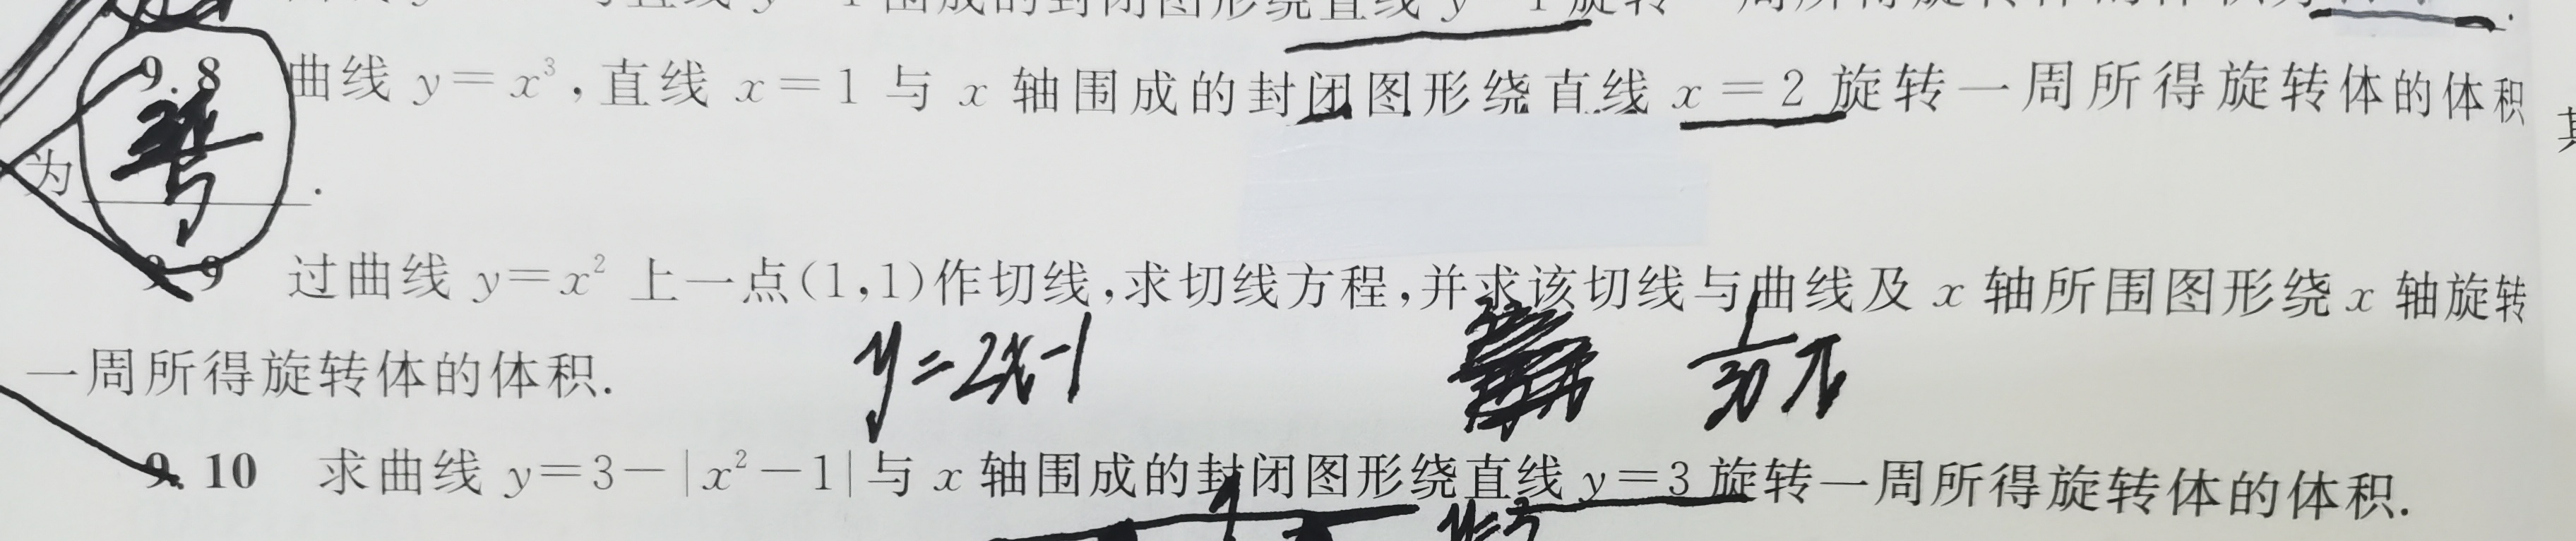 围成的封闭图形绕直线 y
9.8 曲线 y=x³,直线 x=1 与 x 轴围成的封闭图形绕直线 x=2 旋转一周所得旋转体的体积
为 .
9 过曲线 y=x² 上一点(1,1)作切线,求切线方程,并求该切线与曲线及 x 轴所围图形绕 x 轴旋转
一周所得旋转体的体积.
y=2x-1 1/30 π
9.10 求曲线 y=3-|x²-1|与 x 轴围成的封闭图形绕直线 y=3 旋转一周所得旋转体的体积.